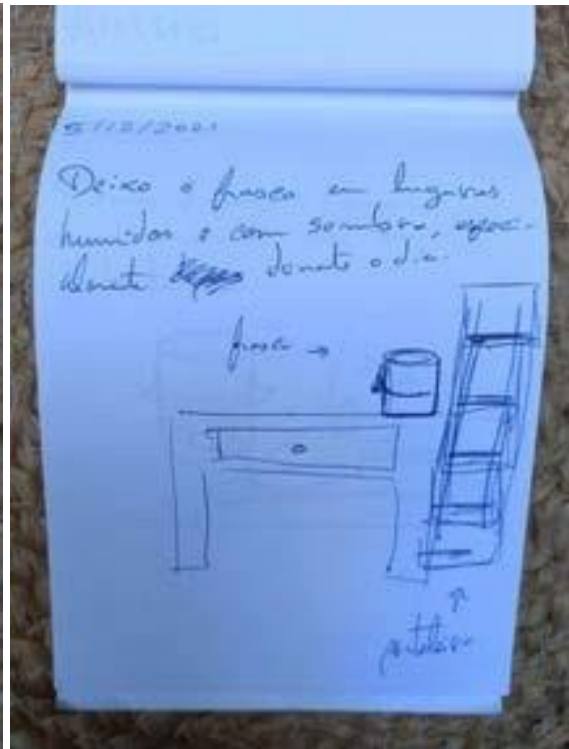 5/12/2021
Deixo o frasco em lugares
humidos e com sombra, especi-
almente durante o dia.
frasco →
prateleira